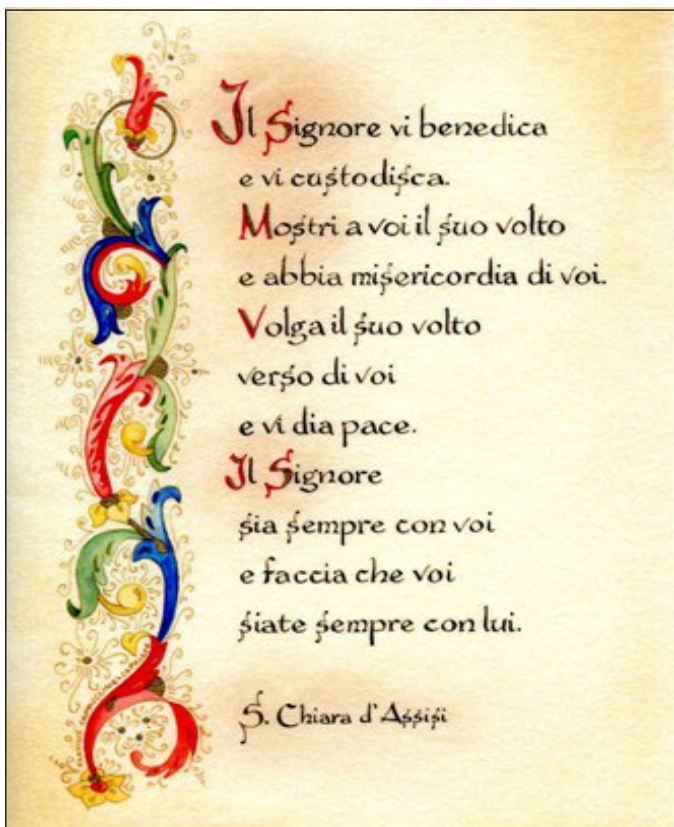 Il Signore vi benedica
e vi custodisca.
Mostri a voi il suo volto
e abbia misericordia di voi.
Volga il suo volto
verso di voi
e vi dia pace.
Il Signore
sia sempre con voi
e faccia che voi
siate sempre con lui.
S. Chiara d'Assisi